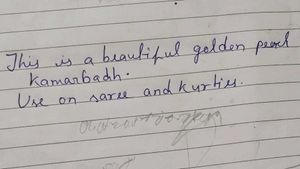 This is a beautiful golden pearl
Kamarbadh.
Use on saree and kurties.